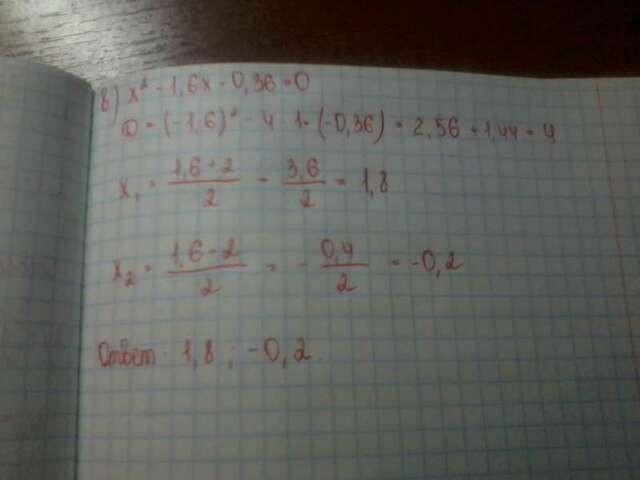 в) x² - 1,6x - 0,36 = 0
D = (-1,6)² - 4 · 1 · (-0,36) = 2,56 + 1,44 = 4
x₁ = (1,6 + 2)/2 = 3,6/2 = 1,8
x₂ = (1,6 - 2)/2 = - 0,4/2 = -0,2
Ответ: 1,8 ; -0,2.